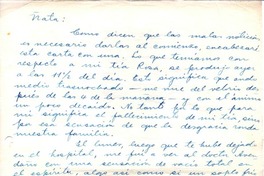 Ñata:
Como dicen que las malas noticias
es necesario darlas al comienzo, encabezaré
esta carta con una. Lo que temíamos con
respecto a mi tía Rosa, se produjo ayer
a las 11½ del día. Esto significa que ando
medio trasnochado — me vine del velorio des-
pués de las 6 de la mañana — y con el ánimo
un poco decaído. No tanto por lo que para
mí significa el fallecimiento de mi tía, sino
por esa sensación de que la desgracia ronda
nuestra familia.
El lunes, luego que te hube dejado
en el hospital, no pude ver al doctor. Anda-
ba con una sensación de vacío total en
el espíritu, algo así como si un soplo